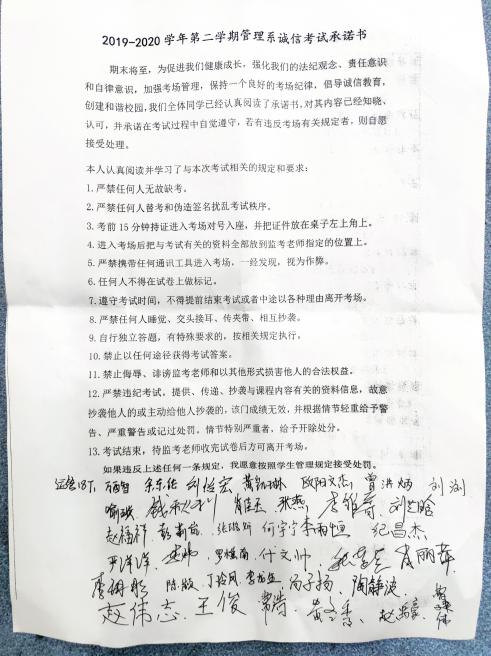 2019-2020 学年第二学期管理系诚信考试承诺书
期末将至，为促进我们健康成长，强化我们的法纪观念、责任意识
和自律意识，加强考场管理，保持一个良好的考场纪律，倡导诚信教育，
创建和谐校园，我们全体同学已经认真阅读了承诺书，对其内容已经知晓、
认可，并承诺在考试过程中自觉遵守，若有违反考场有关规定者，则自愿
接受处理。
本人认真阅读并学习了与本次考试相关的规定和要求：
1.严禁任何人无故缺考。
2.严禁任何人替考和伪造签名扰乱考试秩序。
3.考前 15 分钟持证进入考场对号入座，并把证件放在桌子左上角上。
4.进入考场后把与考试有关的资料全部放到监考老师指定的位置上。
5.严禁携带任何通讯工具进入考场，一经发现，视为作弊。
6.任何人不得在试卷上做标记。
7.遵守考试时间，不得提前结束考试或者中途以各种理由离开考场。
8.严禁任何人睡觉、交头接耳、传夹带、相互抄袭。
9.自行独立答题，有特殊要求的，按相关规定执行。
10.禁止以任何途径获得考试答案。
11.禁止侮辱、诽谤监考老师和以其他形式损害他人的合法权益。
12.严禁违纪考试。提供、传递、抄袭与课程内容有关的资料信息，故意
抄袭他人的或主动给他人抄袭的，该门成绩无效，并根据情节轻重给予警
告、严重警告或记过处罚，情节特别严重者，给予开除处分。
13.考试结束，待监考老师收完试卷后方可离开考场。
如果违反上述任何一条规定，我愿意按照学生管理规定接受处罚。
刘俭宏 欧阳文杰 曾洪炳 刘浏
赵福祥 何宇宁 李雨恒 纪昌杰
严洋洋 罗楼南 什文帅 肖丽萍
陈敏 丁玲凤 冯子扬 陶静波
赵伟志 王俊